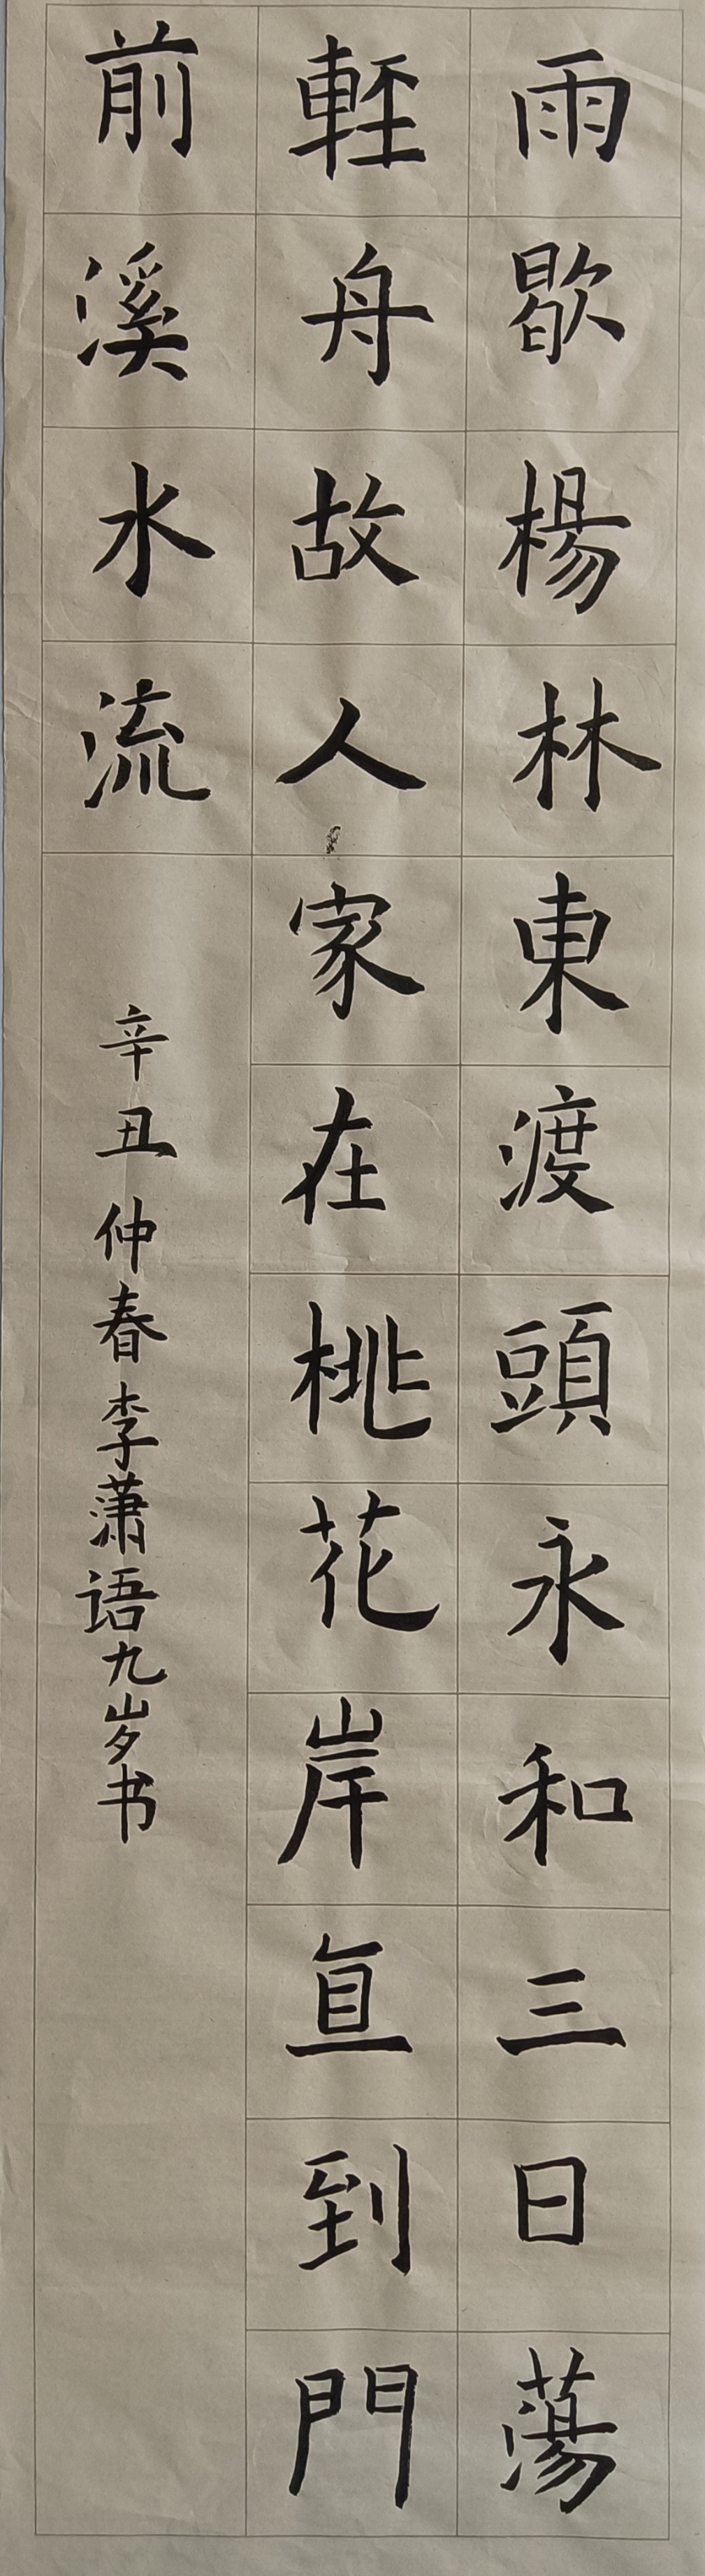 雨歇楊林東渡頭永和三日蕩
輕舟故人家在桃花岸直到門
前溪水流
辛丑仲春李潇语九岁书